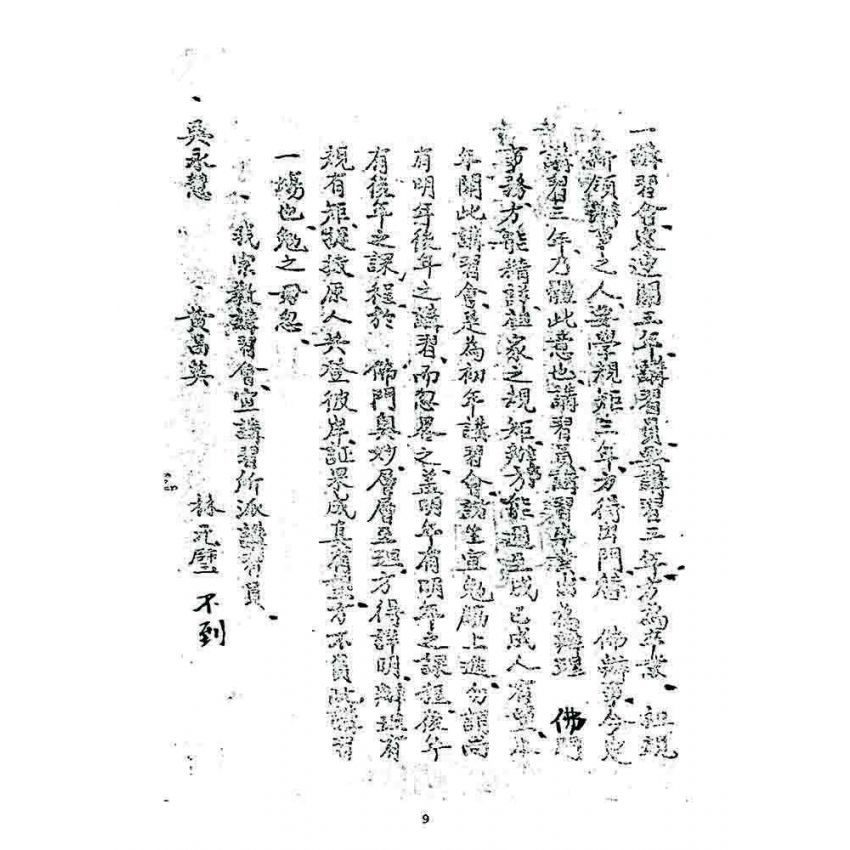 一講習會定連開三年講習員要講習三年方為卒業、祖規
新領辦事之人要學規矩三年方得出門替 佛辦事今定
講習三年乃體此意也講習員講習卒業出為辦理 佛門
事務方能精詳祖家之規矩辦方能通至成已成人有望本
年開此講習會是為初年講習會諸生宜勉勵上進勿謂尚
有明年後年之講習而忽畧之蓋明年有明年之課程後年
有後年之課程於 佛門奧妙層層至理方得詳明辦理有
規有矩提接原人共登彼岸証果成真有望方不負此講習
一場也勉之毋忽、
、我宗教講習會宣講習所派講習員、
、吳永慧 、黃昌英 林元 不到
9